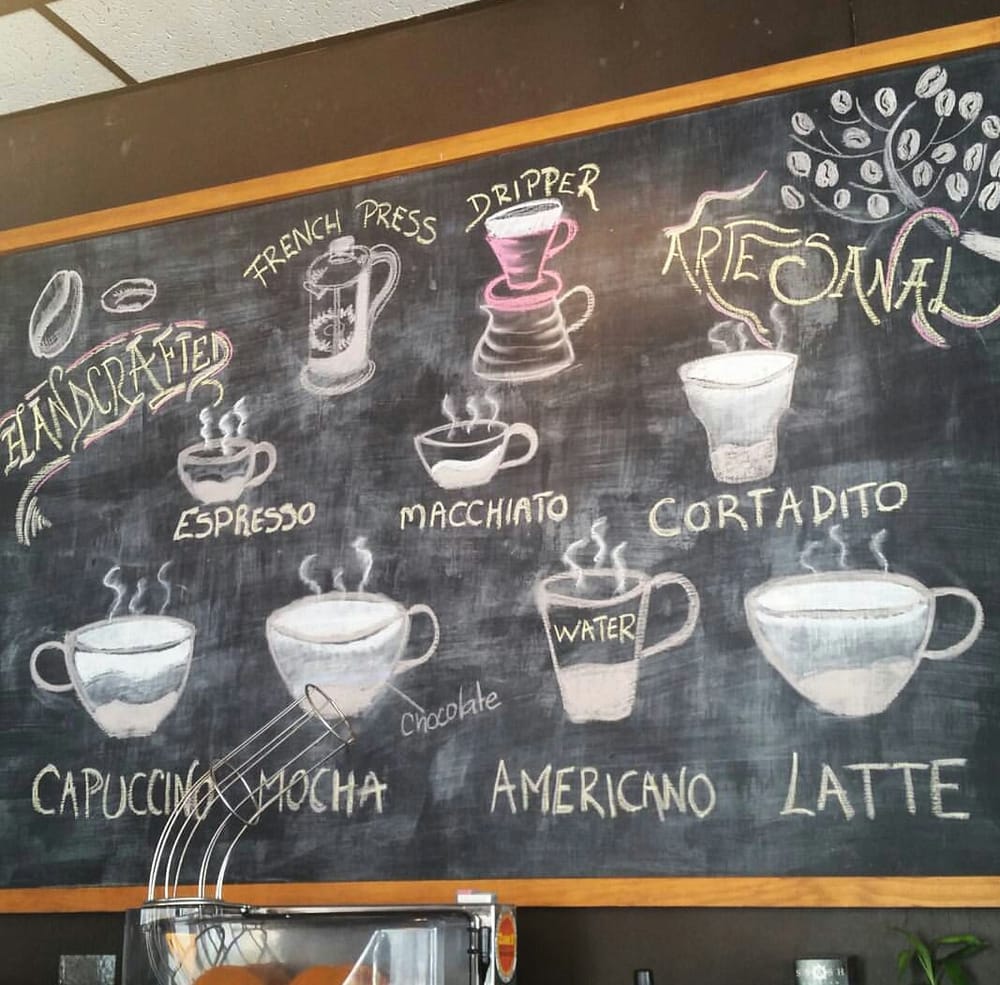 FRENCH PRESS
DRIPPER
ARTESANAL
HANDCRAFTED
ESPRESSO
MACCHIATO
CORTADITO
WATER
Chocolate
CAPUCCINO
MOCHA
AMERICANO
LATTE